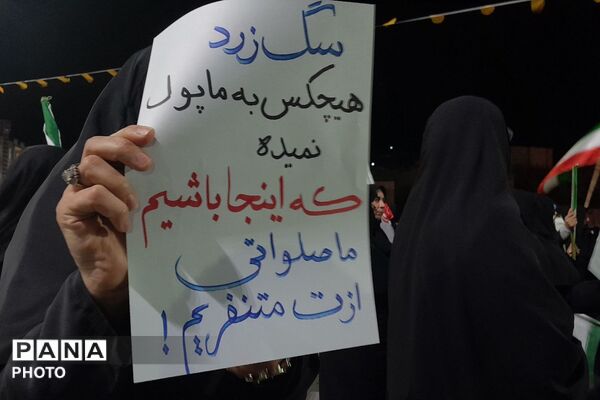 سگ زرد
هیچکس به ما پول
نمیده
که اینجا باشیم
ما صلواتی
ازت متنفریم!
PANA
PHOTO